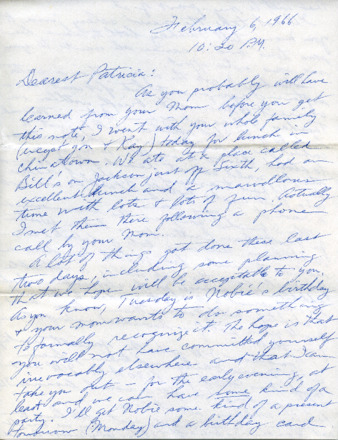 February 6, 1966
10:20 P.M.
Dearest Patricia:
As you probably will have
learned from your Mom before you got
this note, I went with your whole family
(except you & Kay) today for lunch in
Chinatown. We ate at a place called
Bill's on Jackson just off Sixth, had an
excellent lunch and a marvellous
time with lots & lots of fun. Actually
I met them there following a phone
call by your Mom.
A lot of things got done these last
two days, including some planning
that we hope will be acceptable to you.
As you know, Tuesday is Nobie's birthday
& your mom wants to do something
to formally recognize it. The hope is that
you will not have committed yourself
irrevocably elsewhere and that I can
take you out - for the early evening, at
least and we can have some kind of a
party. I'll get Nobie some kind of a present
tomorrow (Monday) and a birthday card